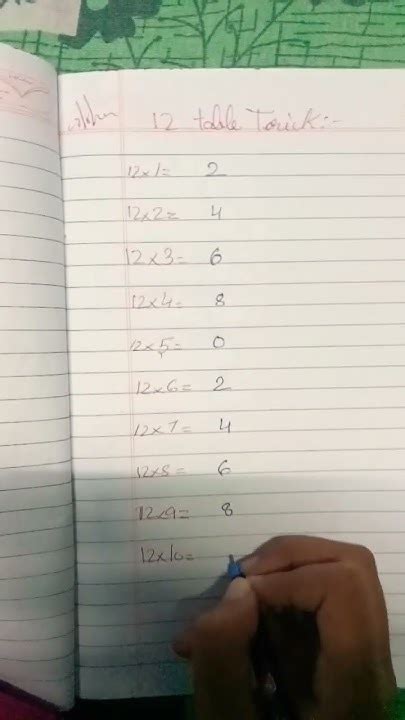 12 table Trick:-
12×1= 2
12×2= 4
12×3= 6
12×4= 8
12×5= 0
12×6= 2
12×7= 4
12×8= 6
12×9= 8
12×10=